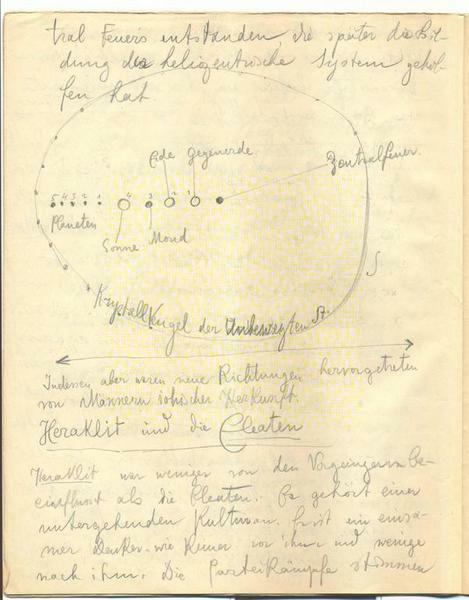 tral Feuers entstanden, die später die Bil-
dung des heliozentrische System gehol-
fen hat
Erde Gegenerde
Zentralfeuer
5 4 3 2 1 4 3 2 1
Planeten
Sonne Mond
Krystallkugel der Unbewegten St.
Indessen aber waren neue Richtungen hervorgetreten
von Männern ionischer Herkunft.
Heraklit und die Eleaten
Heraklit war weniger von den Vorgängern be-
einflusst als die Eleaten. Er gehört einer
untergehenden Kultur an. Er ist ein einsa-
mer Denker wie keiner vor ihm und wenige
nach ihm. Die Parteikämpfe stimmen